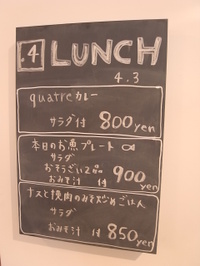 .4 LUNCH
4.3
quatreカレー
サラダ付 800yen
本日のお魚プレート
サラダ
おそうざい2品
おみそ汁 付 900yen
ナスと挽肉のみそ炒めごはん
サラダ
おみそ汁 付 850yen